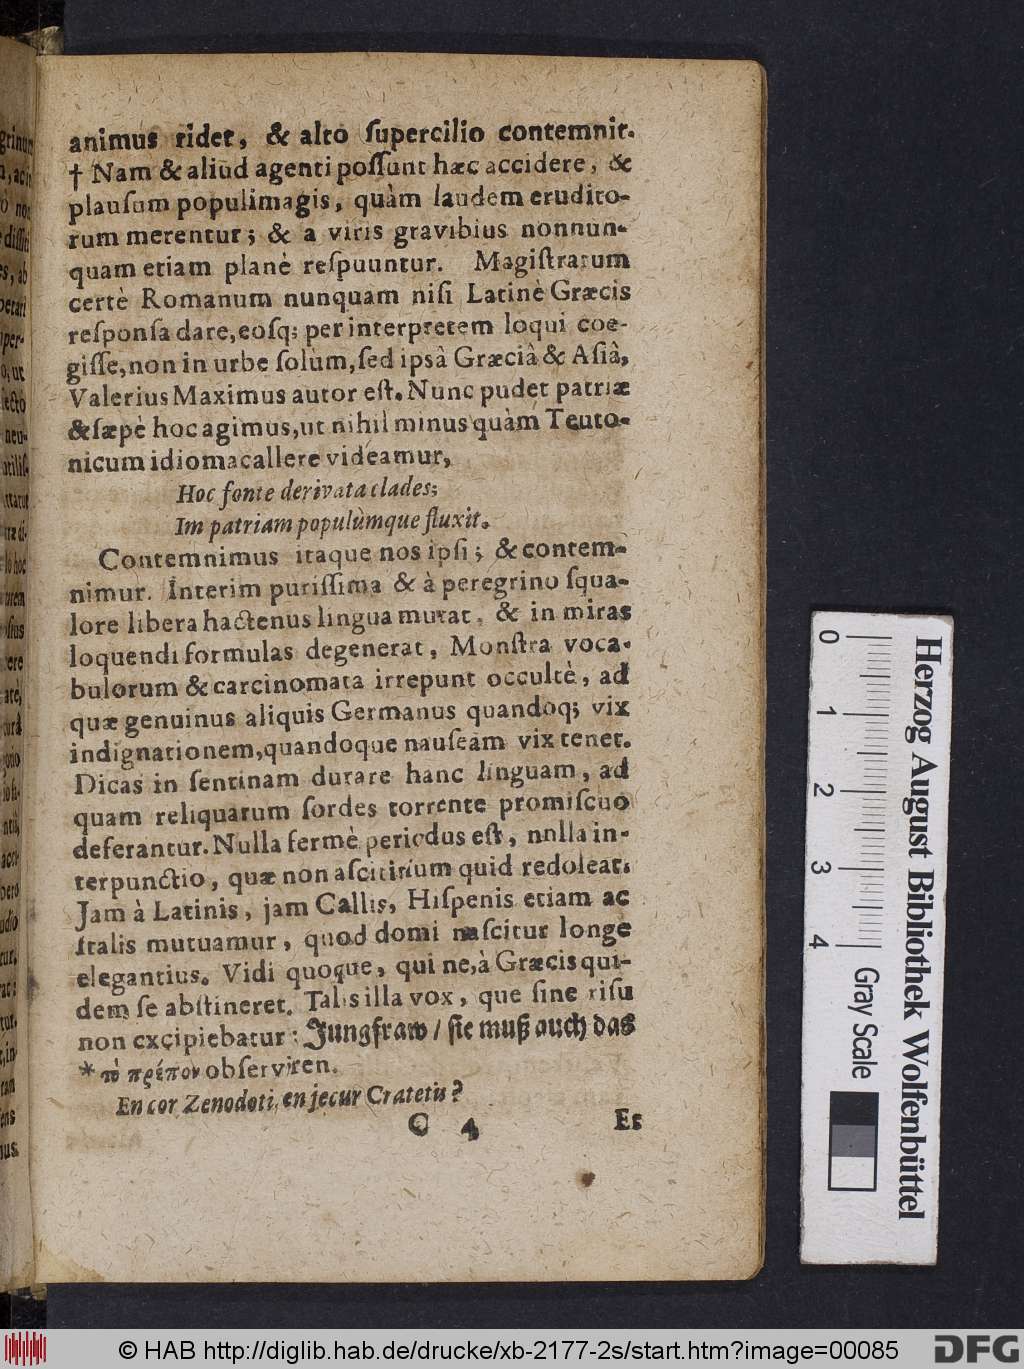 animus ridet, & alto ſupercilio contemnit.
† Nam & aliud agenti poſſunt hæc accidere, &
plauſum populi magis, quàm laudem erudito-
rum merentur; & a viris gravibius nonnun-
quam etiam planè reſpuuntur. Magiſtratum
certè Romanum nunquam niſi Latinè Græcis
reſponſa dare, eoſq; per interpretem loqui coe-
giſſe, non in urbe ſolùm, ſed ipsâ Græciâ & Aſiâ,
Valerius Maximus autor eſt. Nunc pudet patriæ
& ſæpè hoc agimus, ut nihil minus quàm Teuto-
nicum idioma callere videamur,
Hoc fonte derivata clades;
Im patriam populùmque fluxit.
Contemnimus itaque nos ipſi; & contem-
nimur. Interim puriſſima & à peregrino ſqua-
lore libera hactenus lingua mutat, & in miras
loquendi formulas degenerat, Monſtra voca-
bulorum & carcinomata irrepunt occultè, ad
quæ genuinus aliquis Germanus quandoq; vix
indignationem, quandoque nauſeam vix tenet.
Dicas in ſentinam durare hanc linguam, ad
quam reliquarum ſordes torrente promiſcuo
deferantur. Nulla fermè periodus eſt, nnlla in-
terpunctio, quæ non aſcititium quid redoleat.
Jam à Latinis, jam Callis, Hiſpenis etiam ac
Italis mutuamur, quod domi naſcitur longe
elegantius. Vidi quoque, qui ne, à Græcis qui-
dem ſe abſtineret. Talis illa vox, que ſine riſu
non excipiebatur: Jungfraw / ſie muß auch das
* τὸ πρέπον obſerviren.
En cor Zenodoti, en jecur Cratetis?
C 4 Et
Herzog August Bibliothek Wolfenbüttel
0 1 2 3 4 Gray Scale
© HAB http://diglib.hab.de/drucke/xb-2177-2s/start.htm?image=00085
DFG